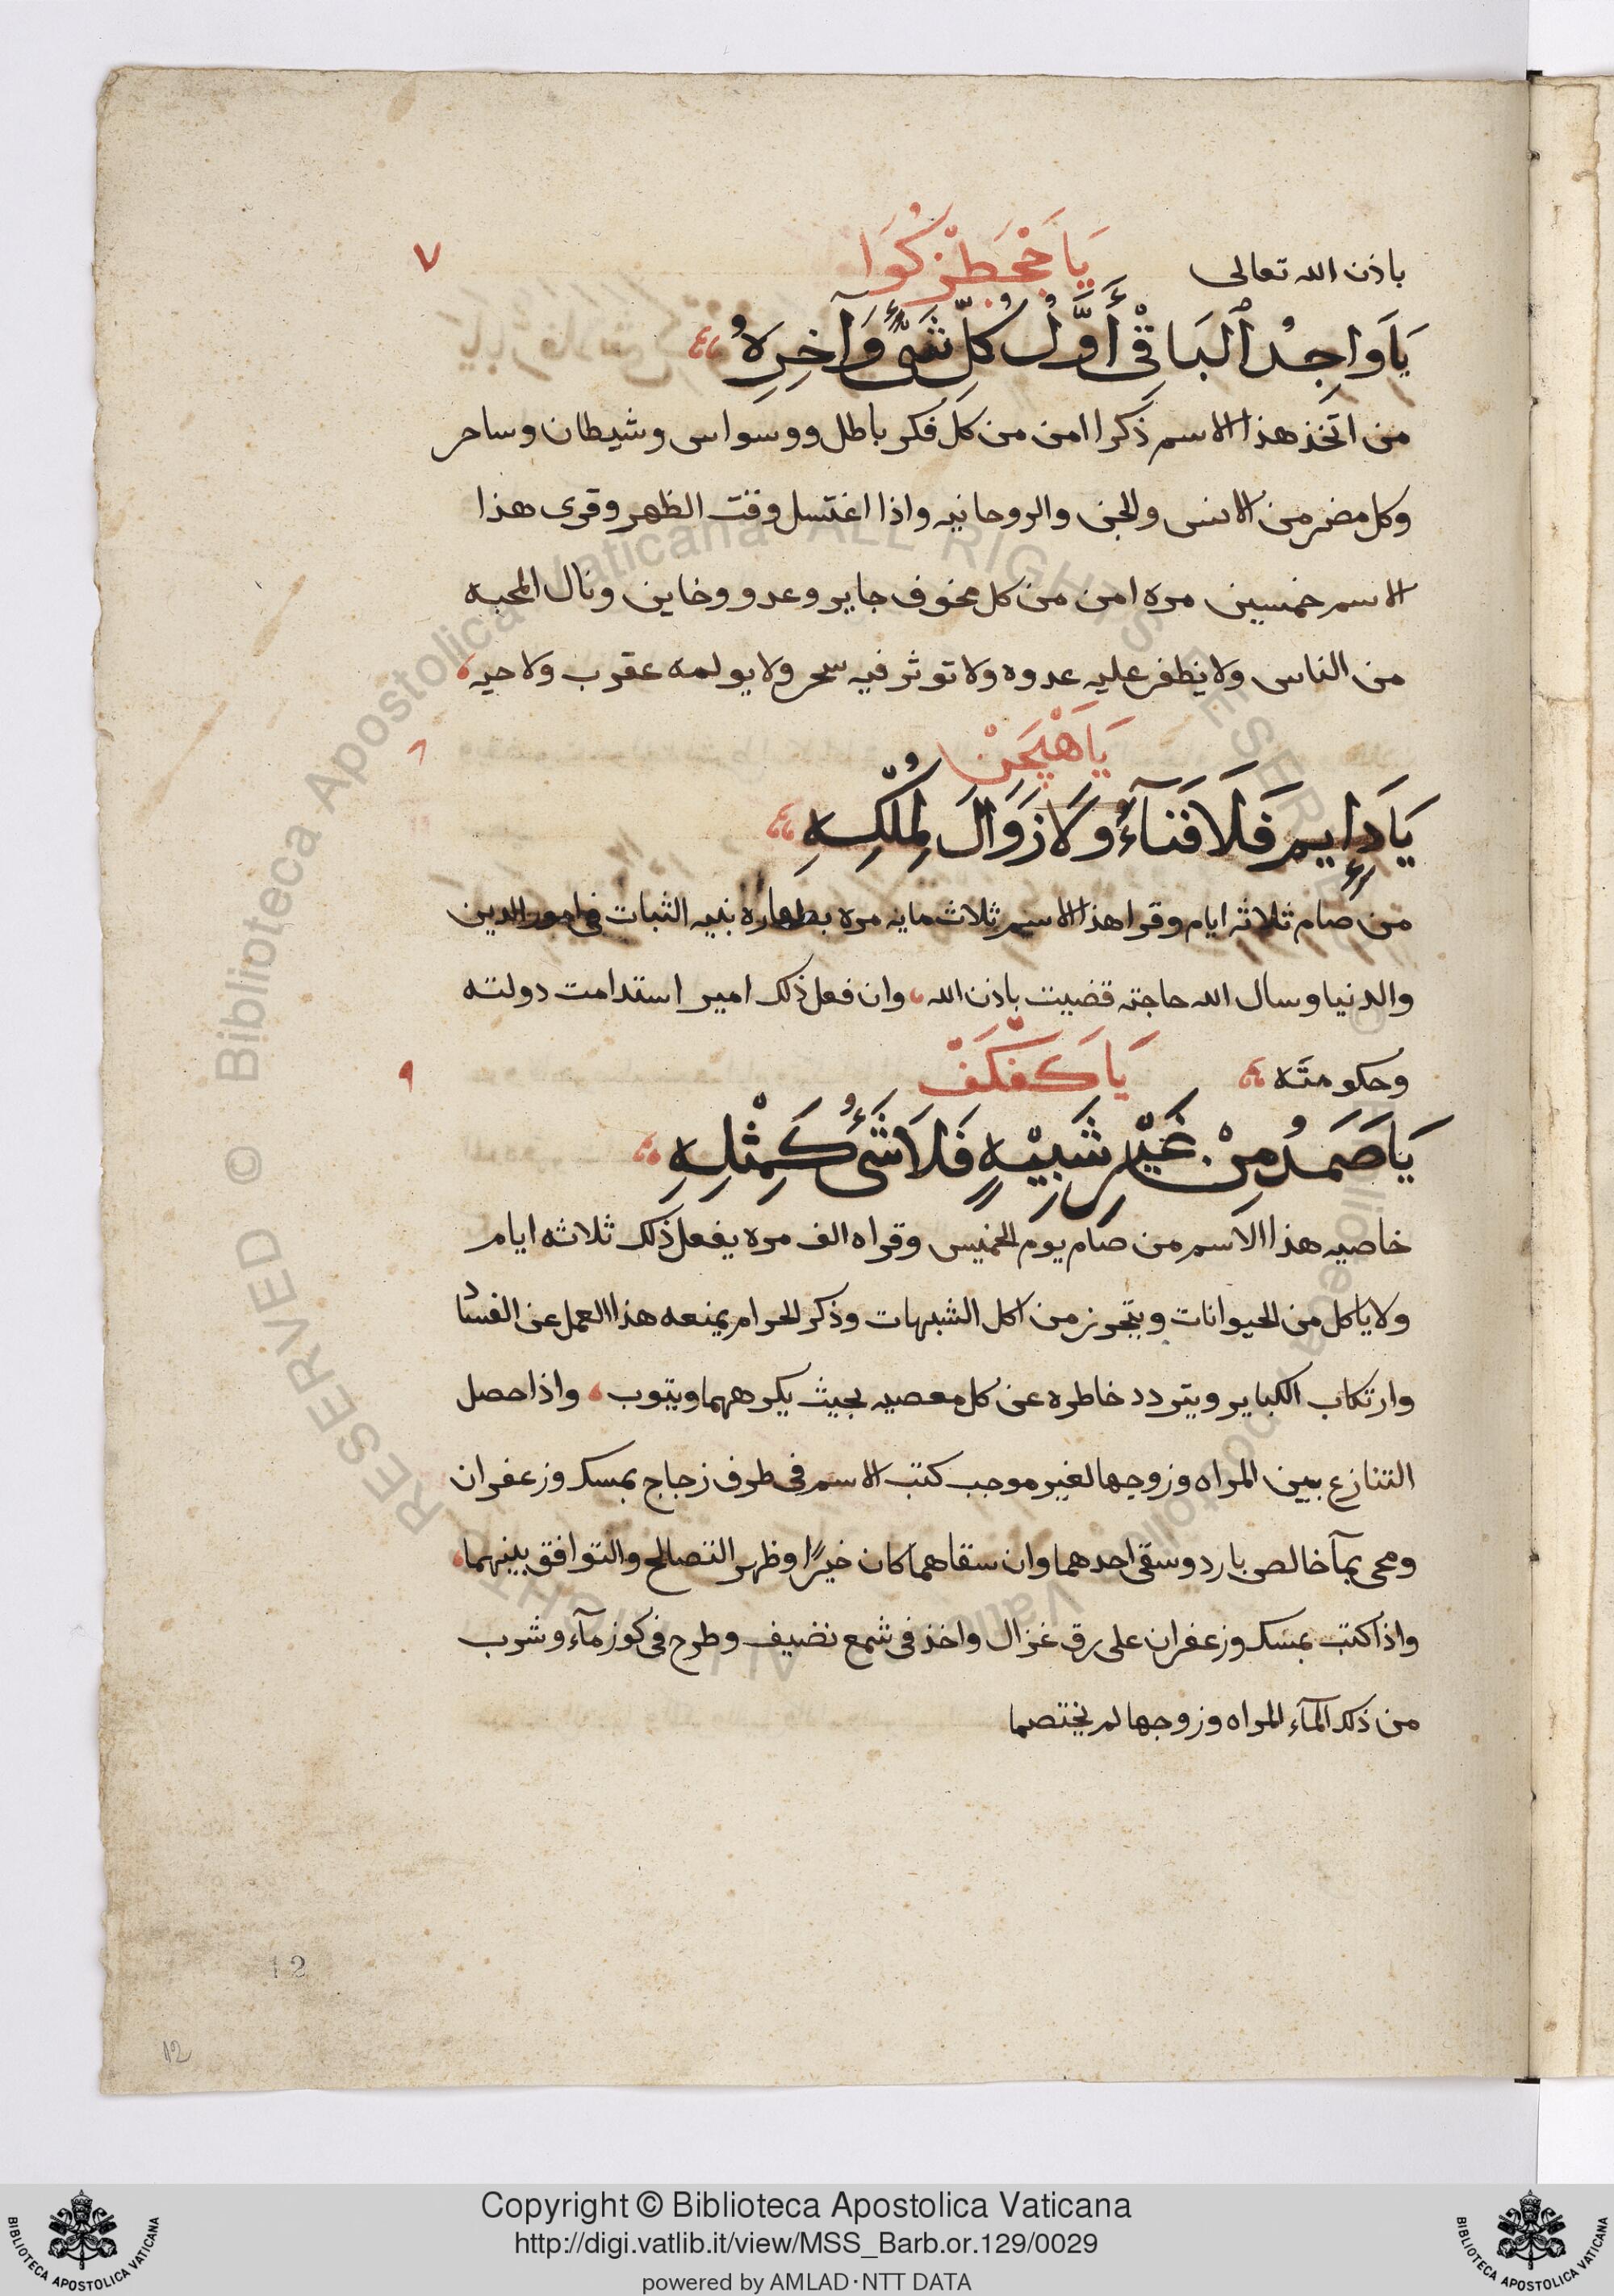 باذن الله تعالى يَا خَجَطْزْكُوَا ٧
يَا وَاجِدُ ٱلبَاقْي أَوَّلُ كُلِّ شَىْءٍ وَآخِرِهُ
من اتخذ هذا الاسم ذكرا امن من كل فكر باطل ووسواس وشيطان وساحر
وكل مضر من الانس والجن والروحانيه واذا اغتسل وقت الظهر وقرى هذا
الاسم خمسين مره امن من كل مخوف جاير وعدو وخاين ونال المحبه
من الناس ولا يظفر عليه عدوه ولا توثر فيه سحر ولا يولمه عقرب ولا حيه
يَا هْيَجَنْ ٨
يَا دٕايم فَلَا فَنَآءُ وَلَا زَوَالَ لِمُلْكِهِ
من صام ثلاثه ايام وقرا هذا الاسم ثلاث مايه مره بطهاره بنيه الثبات فى امور الدين
والدنيا وسال الله حاجته قضيت باذن الله وان فعل ذلك امير استدامت دولته
وحكومته يَا كَفْكَفْ ٩
يَا صَمَدُ مِنْ غَيْرِ شَبِيْهٍ فَلَا شَىْءُ كَمِثْلِهِ
خاصيه هذا الاسم من صام يوم الخميس وقراه الف مره يفعل ذلك ثلاثه ايام
ولا ياكل من الحيوانات ويتحرز من اكل الشبهات وذكر الحرام يمنعه هذا العمل عن الفساد
وارتكاب الكباير ويتردد خاطره عن كل معصيه بحيث يكرههما ويتوب واذا حصل
التنازع بين المراه وزوجها لغير موجب كتب الاسم فى ظرف زجاج بمسك وزعفران
ومحى بمآ خالص بارد وسقى احدهما وان سقاهما كان خيرًا وظهر التصالح والتوافق بينهما
واذا كتب بمسك وزعفران على رق غزال واخذ فى شمع نضيف وطرح فى كوز مآء وشرب
من ذلك المآء المراه وزوجها لم يختصما
12
12
© Biblioteca Apostolica Vaticana ALL RIGHTS RESERVED
Copyright © Biblioteca Apostolica Vaticana
http://digi.vatlib.it/view/MSS_Barb.or.129/0029
powered by AMLAD·NTT DATA
BIBLIOTECA APOSTOLICA VATICANA
BIBLIOTECA APOSTOLICA VATICANA